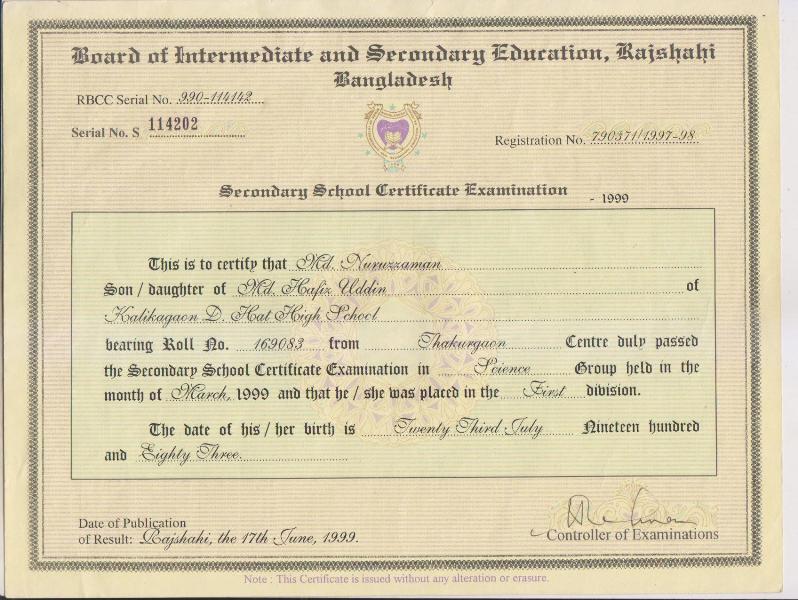 Board of Intermediate and Secondary Education, Rajshahi
Bangladesh
RBCC Serial No. 990-114142
Serial No. S 114202
Registration No. 790371/1997-98
Secondary School Certificate Examination - 1999
This is to certify that Md. Nuruzzaman
Son / daughter of Md. Hafiz Uddin of
Kalikagaon D. Hat High School
bearing Roll No. 169083 from Thakurgaon Centre duly passed
the Secondary School Certificate Examination in Science Group held in the
month of March, 1999 and that he / she was placed in the First division.
The date of his / her birth is Twenty Third July Nineteen hundred
and Eighty Three.
Date of Publication
of Result: Rajshahi, the 17th June, 1999.
Controller of Examinations
Note : This Certificate is issued without any alteration or erasure.